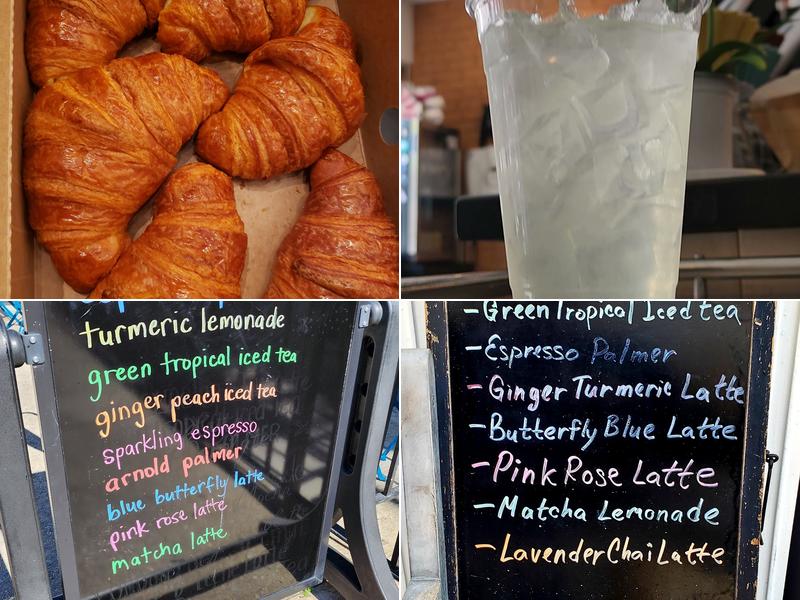 turmeric lemonade
green tropical iced tea
ginger peach iced tea
sparkling espresso
arnold palmer
blue butterfly latte
pink rose latte
matcha latte
- Green Tropical Iced tea
- Espresso Palmer
- Ginger Turmeric Latte
- Butterfly Blue Latte
- Pink Rose Latte
- Matcha Lemonade
- Lavender Chai Latte